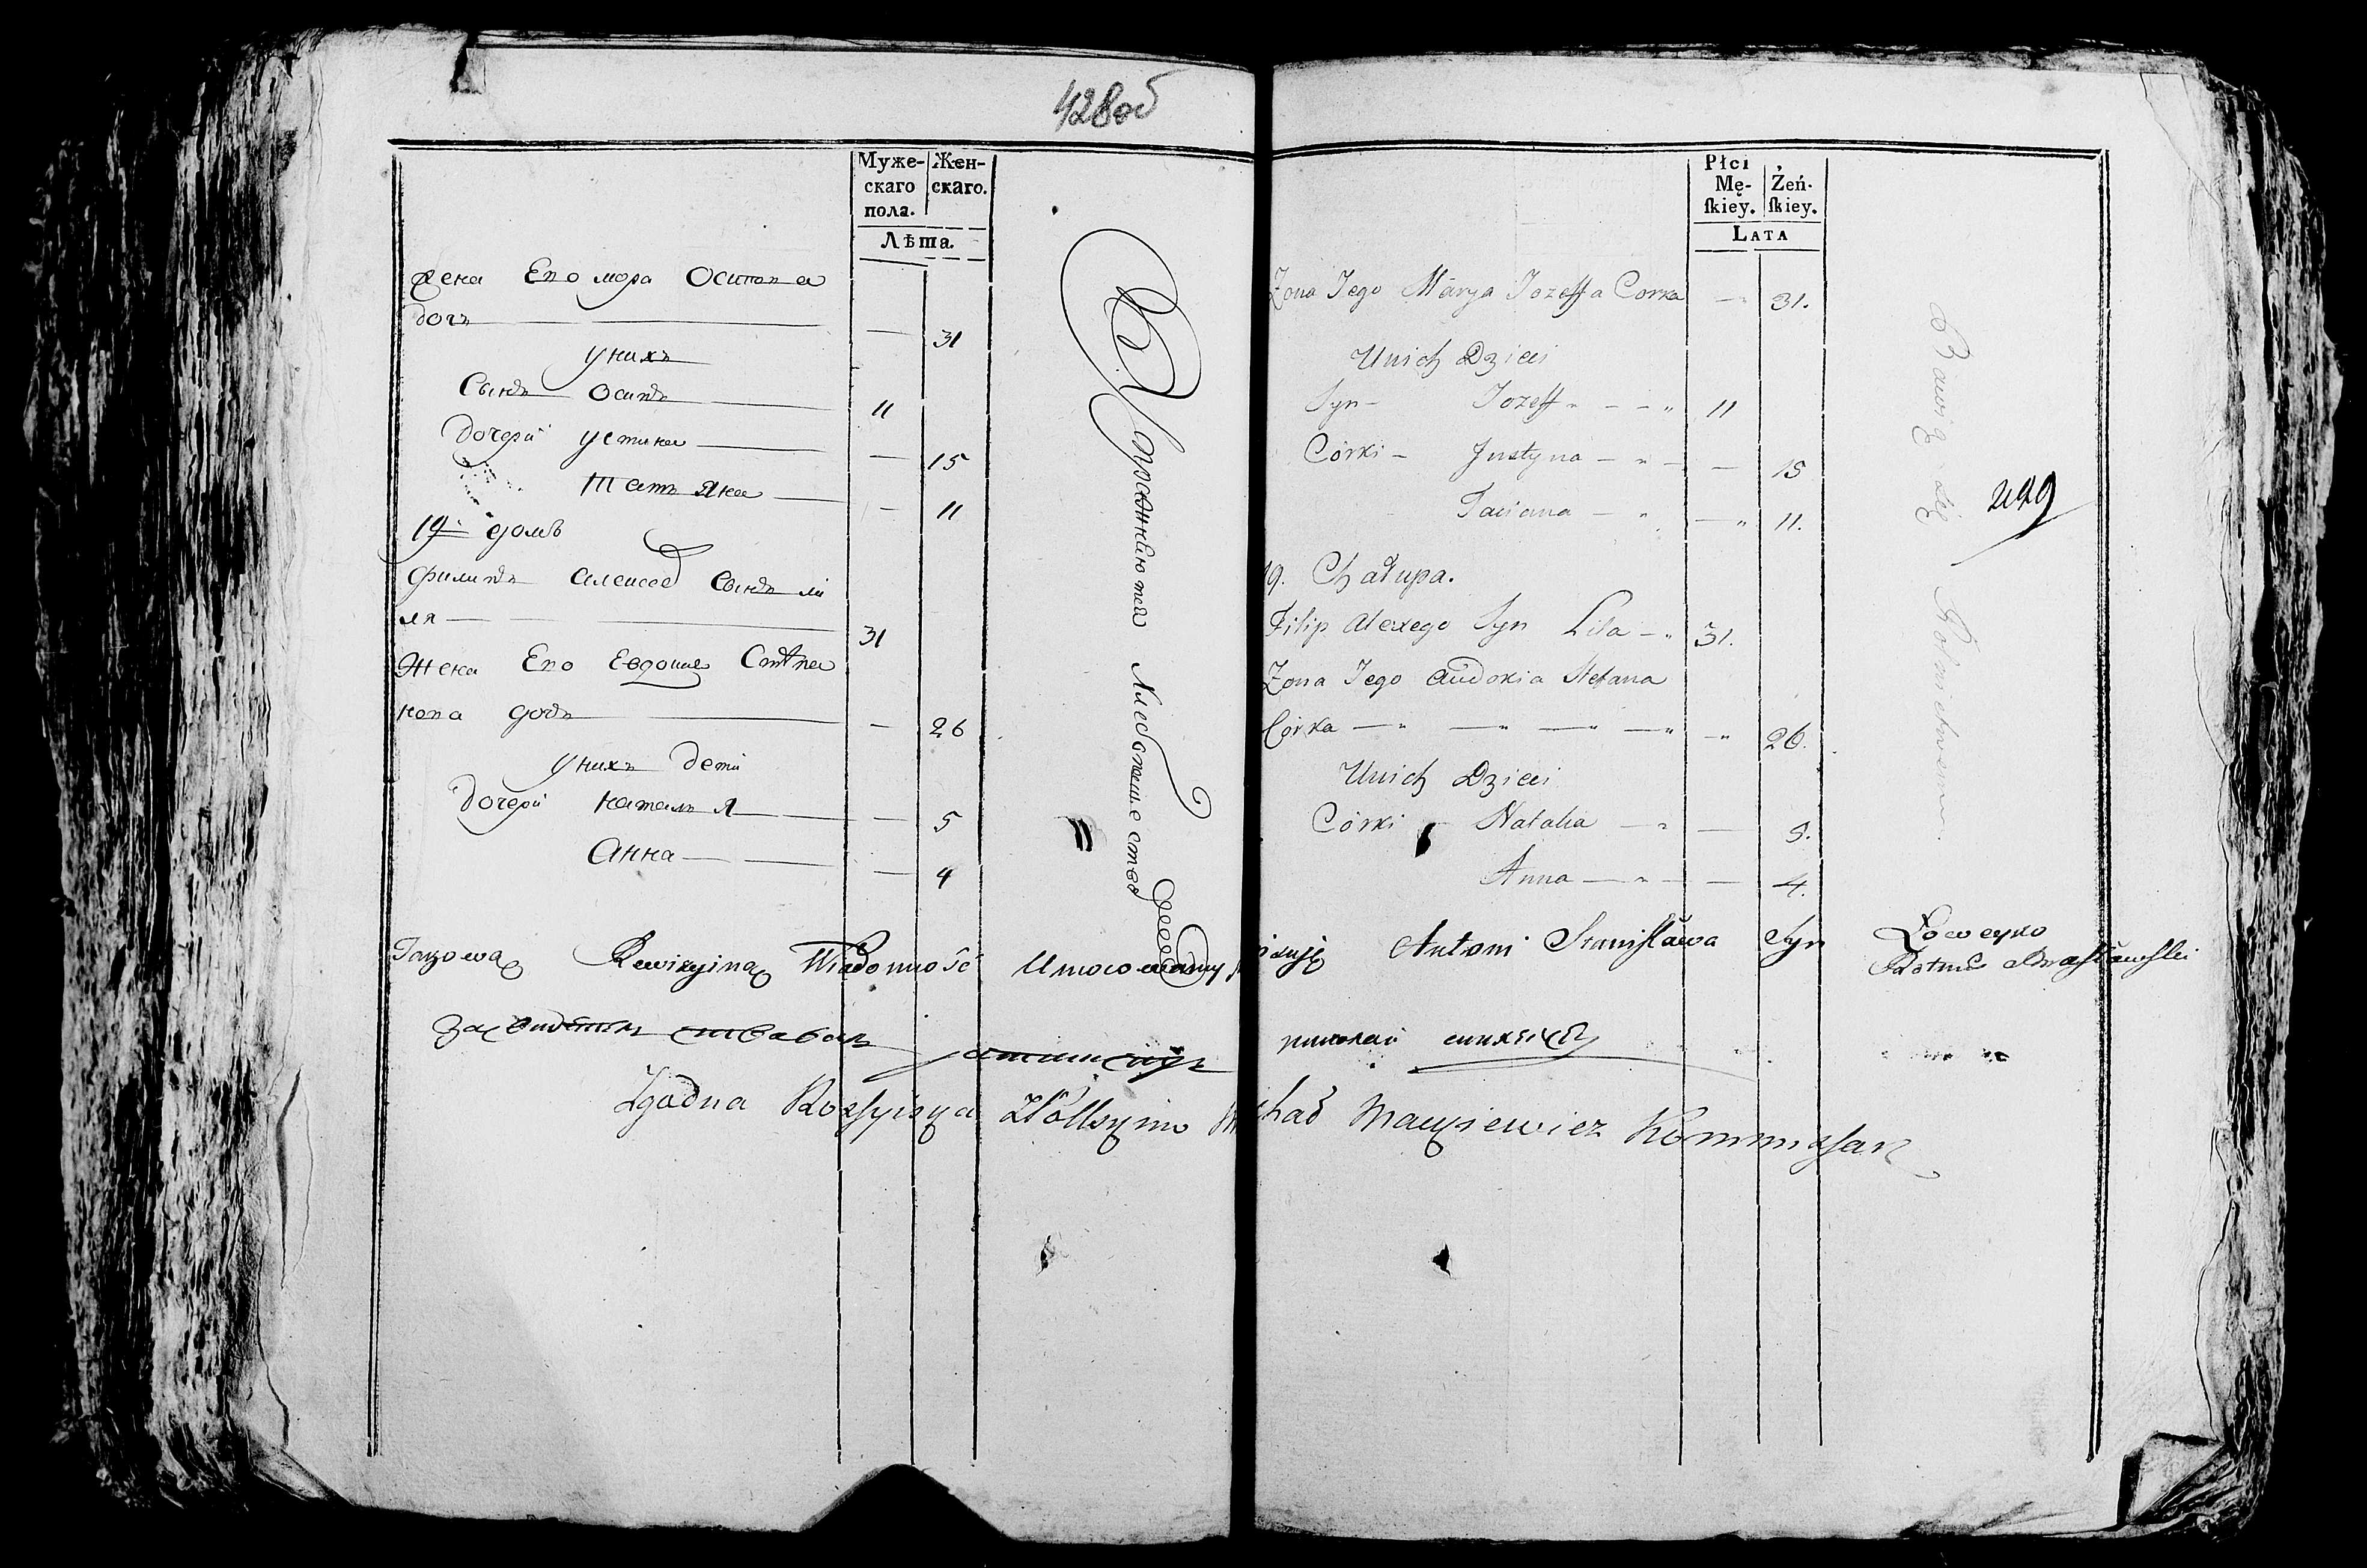 428об
Муже-
скаго
пола.
Жен-
скаго.
Лѣта.
Жена Его мара Осипова
дочь — 31
у нихъ
Сынъ Осипъ — 11
дочери устина — — 15
Татьяна — — 11
19 домъ
Филипъ Алексее Сынъ ли
ля — 31
Жена Его Евдокие Стѣпа
нова дочь — — 26
у нихъ дети
дочери наталья — — 5
Анна — — 4
Упражняютца Хлебопашеством
Płci
Mę-
ſkiey.
Żeń-
ſkiey.
LATA
Zona Jego Marya Jozeffa Corka — 31.
Unich Dzieci
Syn - Jozeff - - - 11
Córki - Justyna - - - 15
Taciana - - 11.
19. Chałupa.
Filip Alexego Syn Lila - 31.
Zona Jego Audokia Stefana
Córka — — — — 26.
Unich Dzieci
Córki - Natalia - — 5.
Anna — - — 4.
Bawią się Rolnictwem.
429
Takową Rewizyiną Wiadomość Umocowany Antoni Stanisława Syn Łoweyko
Rotm
николай
Zgodna Michał Macysiewicz Kommissarz